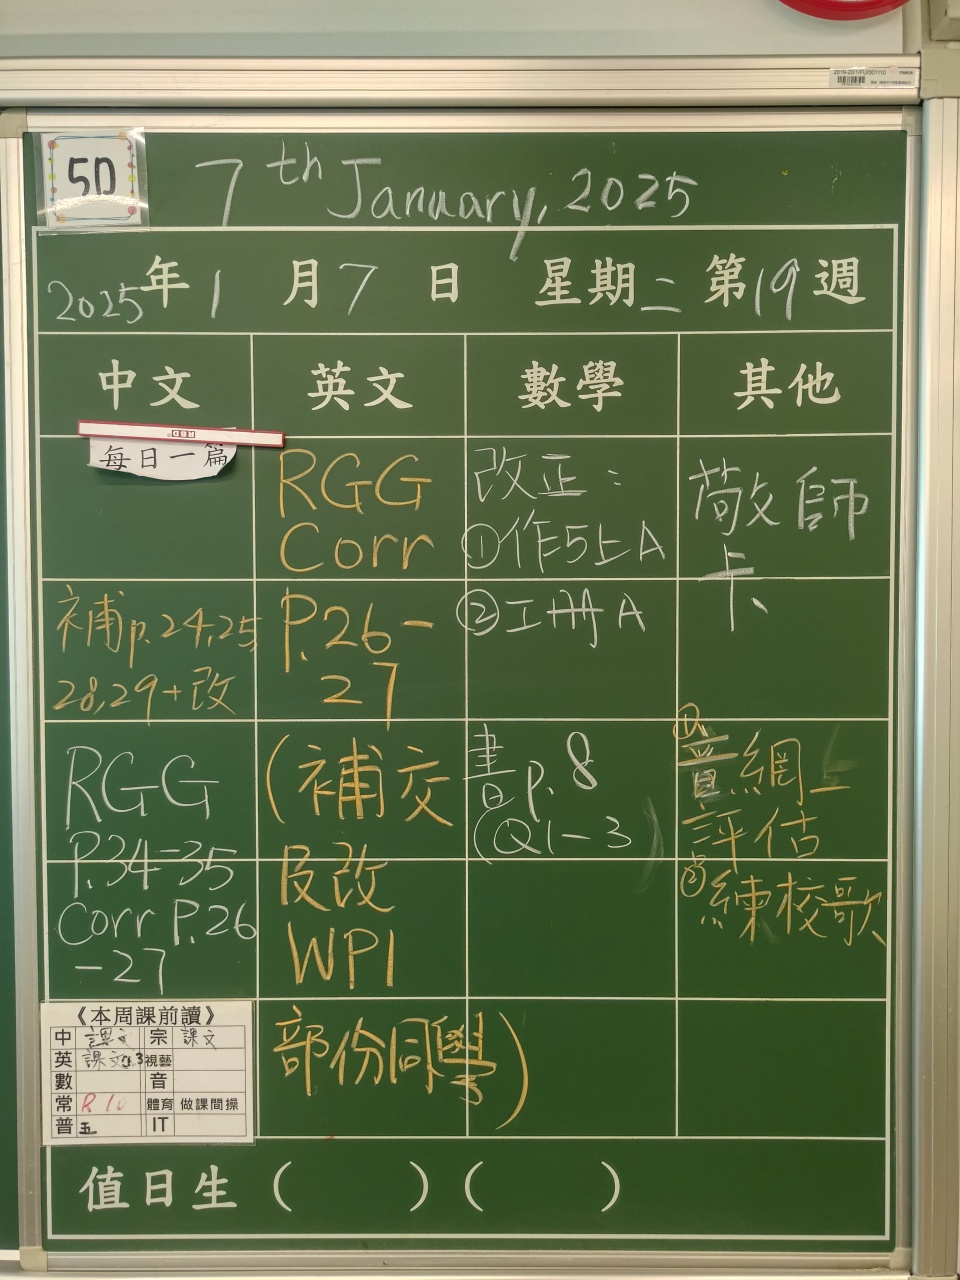 2019-20/1/FU/001110
5D
7th January, 2025
2025年1月7日 星期二 第19週
中文 英文 數學 其他
每日一篇
補p.24,25
28,29+改
RGG
P.34-35
Corr P.26
-27
RGG
Corr
P.26-
27
(補交
及改
WP1
部份同學)
改正：
①作5上A
②工冊A
書p.8
(Q1-3)
敬師
卡
①音網上
評估
②練校歌
《本周課前讀》
中 課文 宗 課文
英 課文 視藝
數 音
常 R 10 體育 做課間操
普 五 IT
值日生( )( )